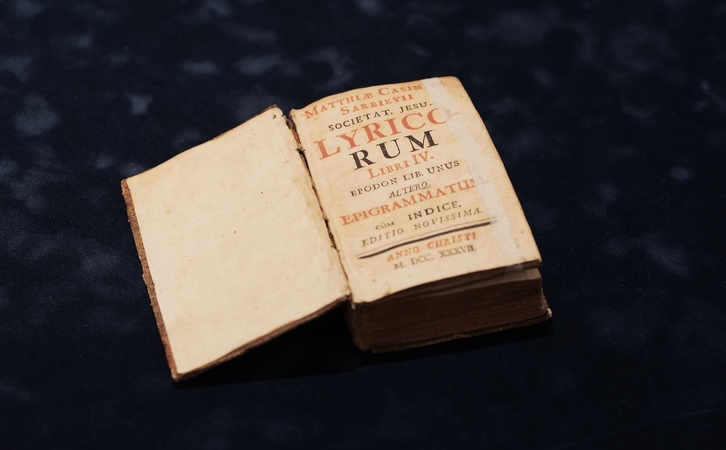 MATTHIÆ CASIM
SARBIEVII
SOCIETAT. JESU.
LYRICO
RUM
LIBRI IV.
EPODON LIB. UNUS
ALTERQ.
EPIGRAMMATUM
CUM INDICE.
EDITIO NOVISSIMA.
ANNO CHRISTI
M. DCC. XXXVII.